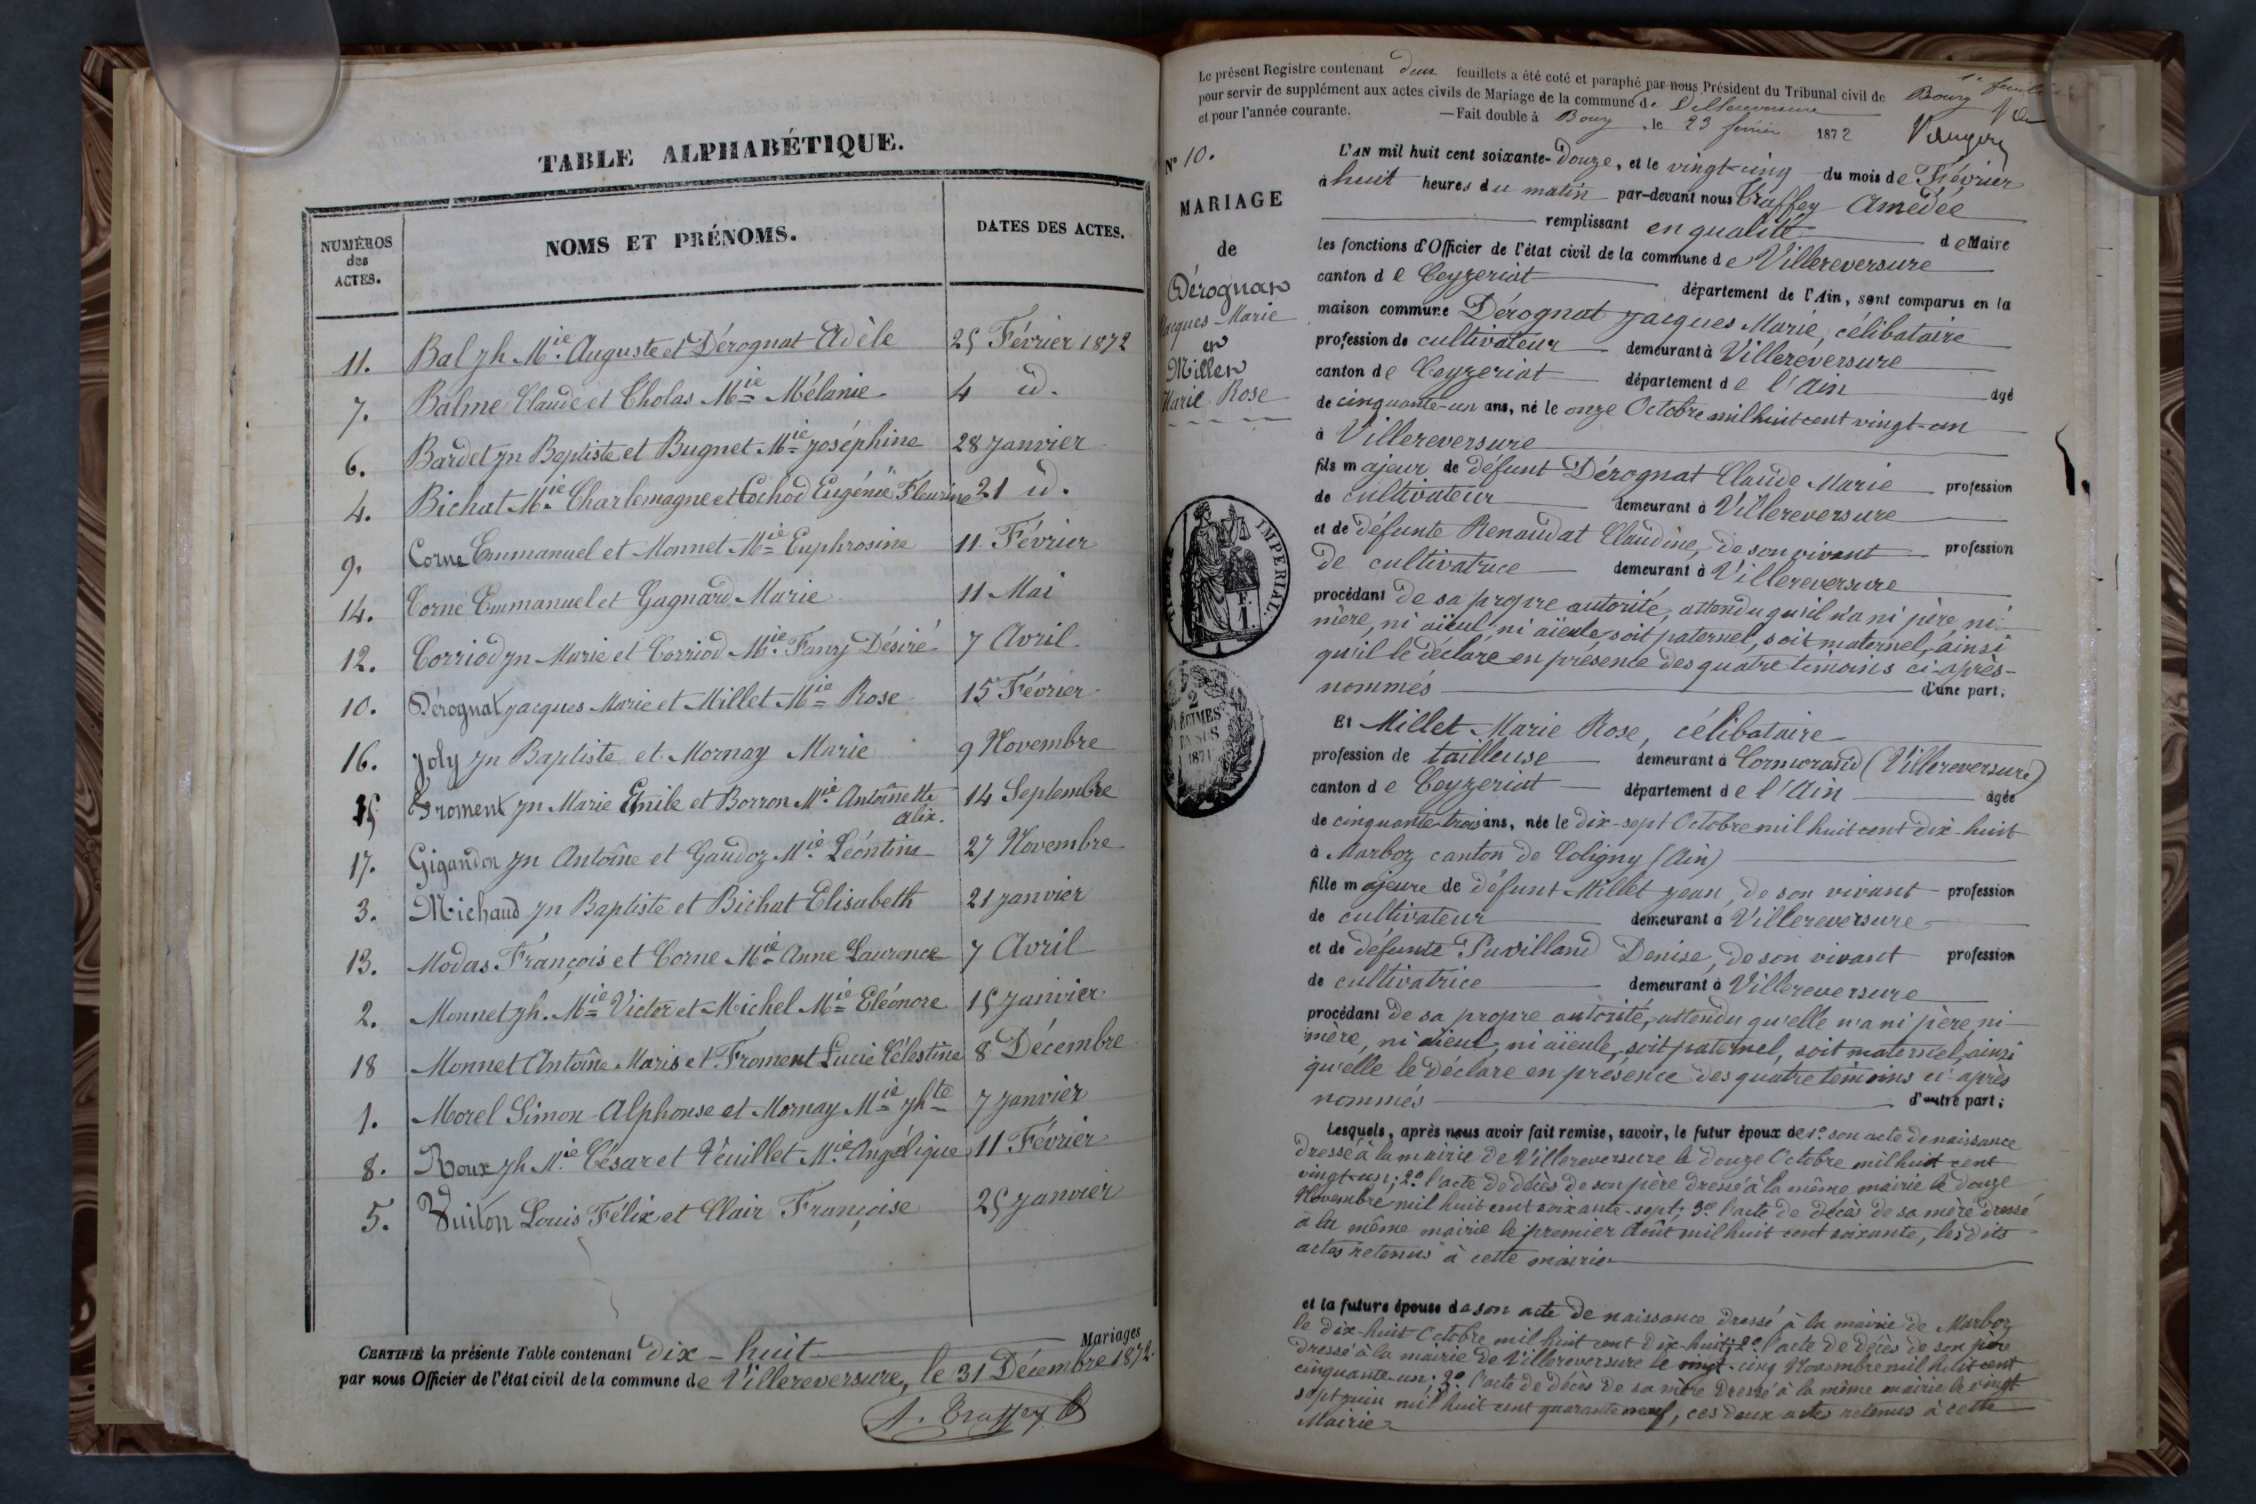 TABLE ALPHABÉTIQUE.
NUMÉROS des ACTES. NOMS ET PRÉNOMS. DATES DES ACTES.
11. Bal Jh Mie Auguste et Dérognat Adèle 25 Février 1872
7. Balme Claude et Tholas Mie Mélanie 4 id.
6. Bardet Jn Baptiste et Bugnet Mie Joséphine 28 Janvier
4. Bichat Mie Charlemagne et Cochod Eugénie Fleurine 21 id.
9. Corne Emmanuel et Monnet Mie Euphrosine 11 Février
14. Corne Emmanuel et Gagnard Marie 11 Mai
12. Corriod Jn Marie et Corriod Mie Fanny Désiré 7 Avril
10. Dérognat Jacques Marie et Millet Mie Rose 15 Février
16. Joly Jn Baptiste et Mornay Marie 9 Novembre
15 Froment Jn Marie Emile et Borron Mie Antoinette Alix. 14 Septembre
17. Gigandon Jn Antoine et Gaudoz Mie Léontine 27 Novembre
3. Michaud Jn Baptiste et Bichat Elisabeth 21 Janvier
13. Modas François et Corne Mie Anne Laurence 7 Avril
2. Monnet Jh. Mie Victor et Michel Mie Eléonore 15 Janvier
18 Monnet Antoine Maris et Froment Lucie Célestine 8 Décembre
1. Morel Simon Alphonse et Mornay Mie Jhte 7 Janvier
8. Roux Jh Mie César et Veuillet Mie Angélique 11 Février
5. Vuiton Louis Félix et Clair Françoise 25 Janvier
CERTIFIÉ la présente Table contenant dix-huit Mariages
par nous Officier de l'état civil de la commune de Villereversure, le 31 Décembre 1872.
A. Traffey
1er feuillet
Le présent Registre contenant deux feuillets a été coté et paraphé par nous Président du Tribunal civil de Bourg
pour servir de supplément aux actes civils de Mariage de la commune de Villereversure
et pour l'année courante. —Fait double à Bourg, le 23 février 1872
N° 10.
MARIAGE
de
Dérognat
Jacques-Marie
et
Millet
Marie Rose
IMPERIAL.
2
DÉCIMES
EN SUS
1871
L'AN mil huit cent soixante-douze, et le vingt-cinq du mois de Février
à huit heures du matin par-devant nous Traffey Amédée
remplissant en qualité de Maire
les fonctions d'Officier de l'état civil de la commune de Villereversure
canton de Ceyzeriat département de l'Ain, sont comparus en la
maison commune Dérognat Jacques Marie, célibataire
profession de cultivateur demeurant à Villereversure
canton de Ceyzeriat département de l'Ain agé
de cinquante-un ans, né le onze Octobre mil huit cent vingt-un
à Villereversure
fils majeur de défunt Dérognat Claude Marie profession
de cultivateur demeurant à Villereversure
et de défunte Renaudat Claudine, de son vivant profession
de cultivatrice demeurant à Villereversure
procédant de sa propre autorité, attendu qu'il n'a ni père, ni
mère, ni aïeul, ni aïeule, soit paternel, soit maternel, ainsi
qu'il le déclare en présence des quatre témoins ci-après-
nommés d'une part;
Et Millet Marie Rose, célibataire
profession de tailleuse demeurant à Cormorand (Villereversure)
canton de Ceyzeriat département de l'Ain agée
de cinquante-trois ans, née le dix-sept Octobre mil huit cent dix-huit
à Marboz canton de Coligny (Ain)
fille majeure de défunt Millet Jean, de son vivant profession
de cultivateur demeurant à Villereversure
et de défunte Puvilland Denise, de son vivant profession
de cultivatrice demeurant à Villereversure
procédant de sa propre autorité, attendu qu'elle n'a ni père, ni
mère, ni aïeul, ni aïeule, soit paternel, soit maternel, ainsi
qu'elle le déclare en présence des quatre témoins ci-après
nommés d'autre part;
Lesquels, après nous avoir fait remise, savoir, le futur époux de 1° son acte de naissance
dressé à la mairie de Villereversure le douze Octobre mil huit cent
vingt-un; 2° l'acte de décès de son père dressé à la même mairie le douze
Novembre mil huit cent soixante-sept; 3° l'acte de décès de sa mère dressé
à la même mairie le premier Août mil huit cent soixante, les dits
actes retenus à cette mairie
et la future épouse de son acte de naissance dressé à la mairie de Marboz
le dix-huit Octobre mil huit cent dix-huit; 2° l'acte de décès de son père
dressé à la mairie de Villereversure le vingt-cinq Novembre mil huit cent
cinquante-un; 3° l'acte de décès de sa mère dressé à la même mairie le vingt
sept juin mil huit cent quarante neuf, ces deux actes retenus à cette
Mairie